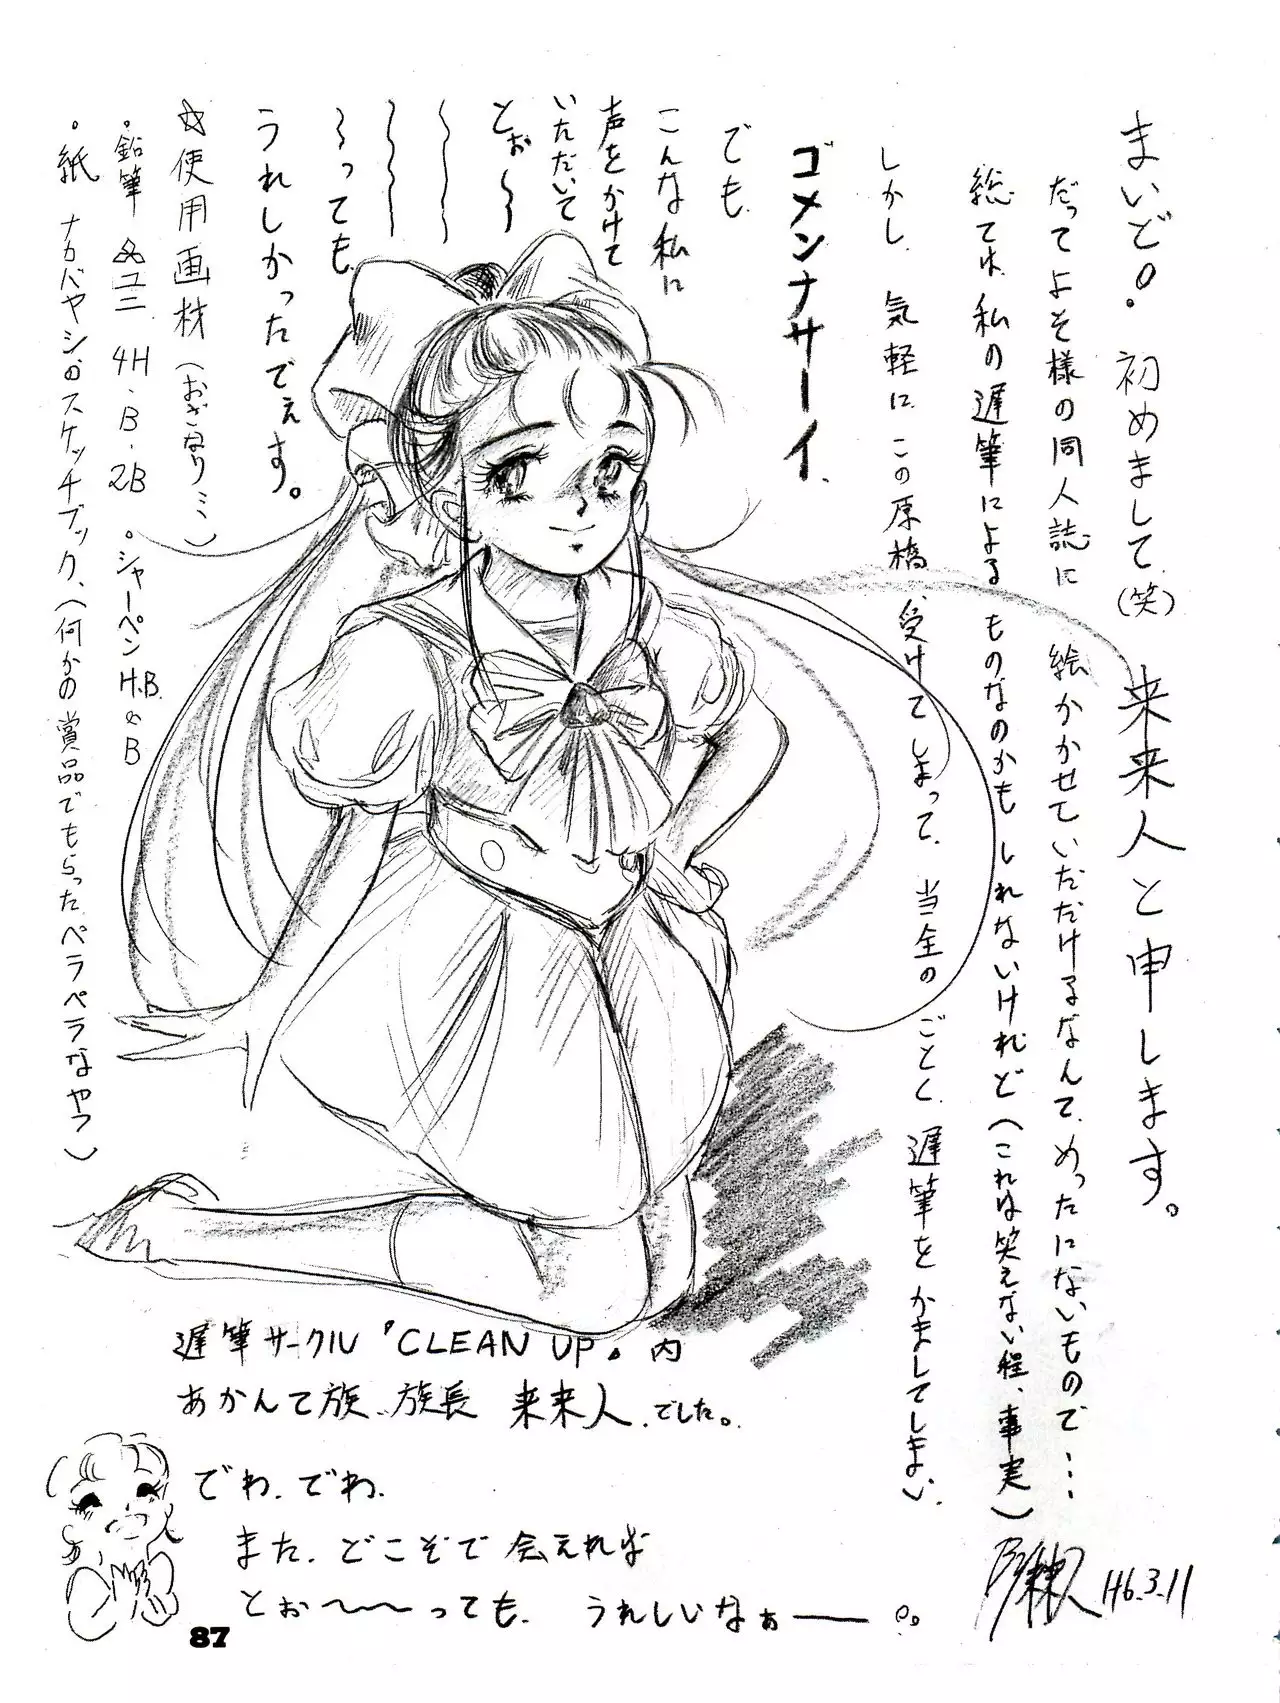 まいど。初めまして(笑)来来人と申します。
だってよそ様の同人誌に絵かかせていただけるなんて、めったにないもので…
総ては、私の遅筆によるものなのかもしれないけれど(これは笑えない程、事実)
しかし、気軽にこの原稿、受けてしまって、当全のごとく、遅筆をかましてしまい、
ゴメンナサーイ、
でも、
こんな私に
声をかけて
いただいて
とぉ〜
〜
〜
〜っても、
うれしかったでぇす。
☆使用画材(おざなり…)
・鉛筆 ユニ 4H・B・2B ・シャーペン H.B.&B
・紙 ナカバヤシのスケッチブック、(何かの賞品でもらったペラペラなやつ)
遅筆サークル『CLEAN UP』内
あかんて族、族長 来来人、でした。
でわ、でわ、
また、どこぞで会えれば
とぉ〜〜〜っても、うれしいなぁー。
H6.3.11
87